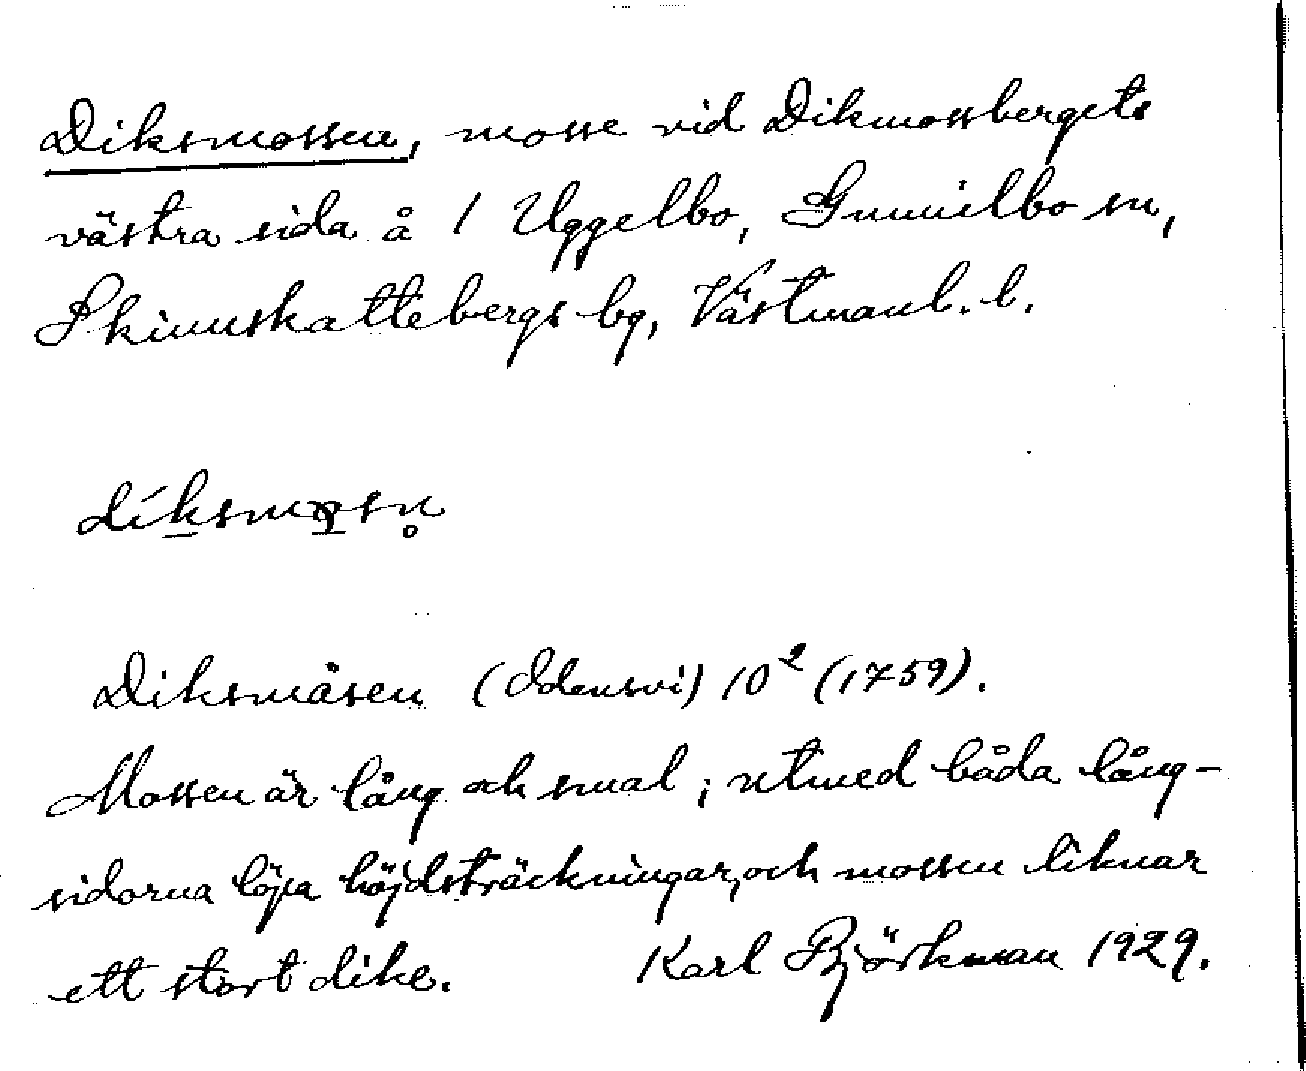 Diksmossen, mosse vid Dikmossbergets
västra sida å 1 Uggelbo, Gunnilbo sn,
Skinnskattebergs bg, Västmanl. l.
díksmɷsn̥
Diksmåsen (Odensvi) 10² (1759).
Mossen är lång och smal; utmed båda lång-
sidorna löpa höjdsträckningar, och mossen liknar
ett stort dike. Karl Björkman 1929.